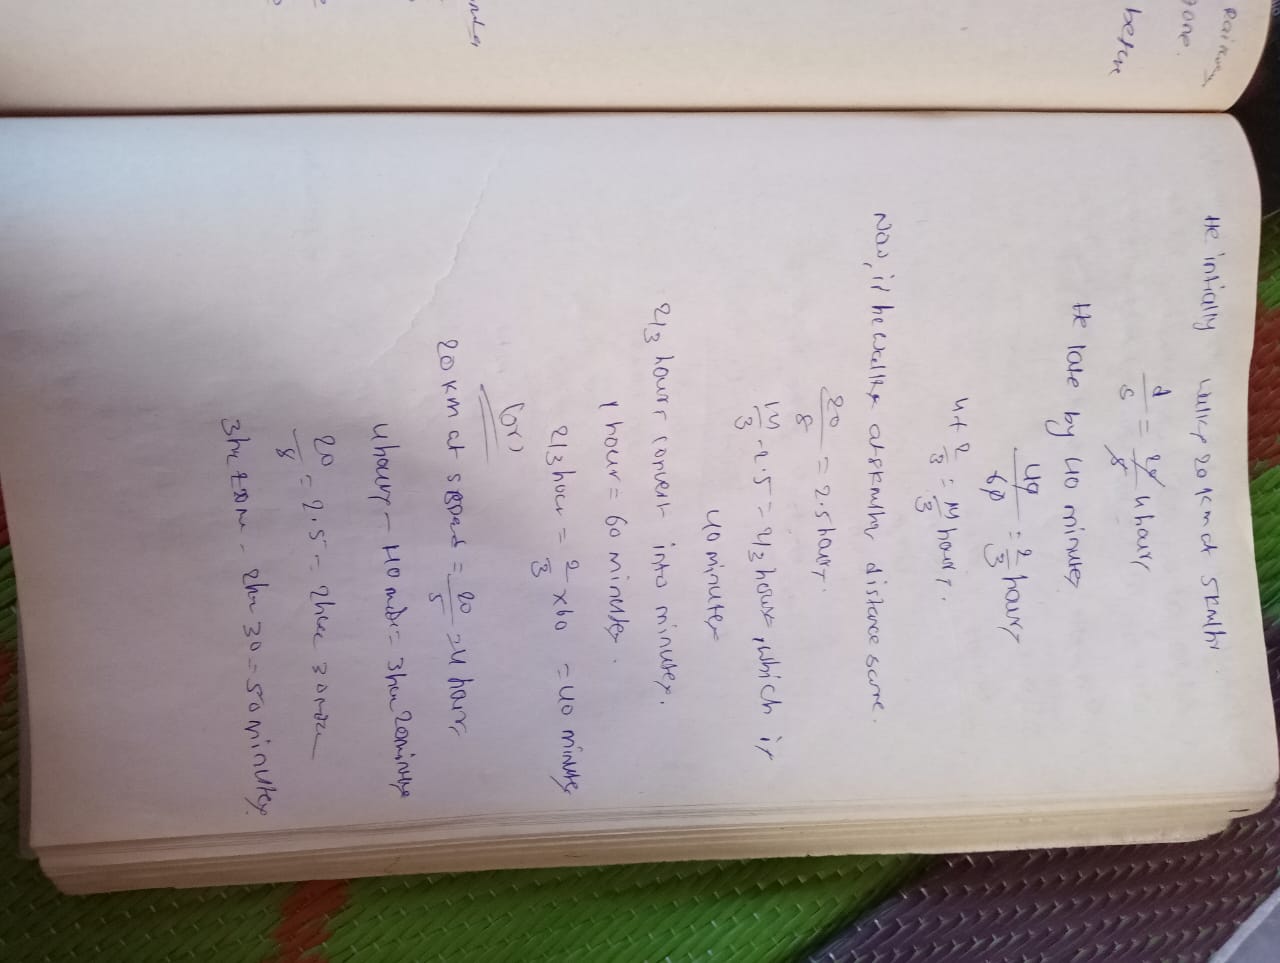 Rainy
gone.
before
nds
He intially walks 20 km at 5km/hr
d/5 = 20/5 4 hours
He late by 40 minutes
40/60 = 2/3 hours
4 + 2/3 = 14/3 hours.
Now, if he walks at 8km/hr distance same.
20/8 = 2.5 hours.
14/3 - 2.5 = 2/3 hours, which is
40 minutes
2/3 hours convert into minutes.
1 hour = 60 minutes.
2/3 hour = 2/3 x 60 = 40 minutes
(or)
20 km at speed = 20/5 = 4 hours
4 hours - 40 min = 3hr 20 minutes
20/8 = 2.5 = 2hr 30 min
3hr 20m - 2hr 30 = 50 minutes.